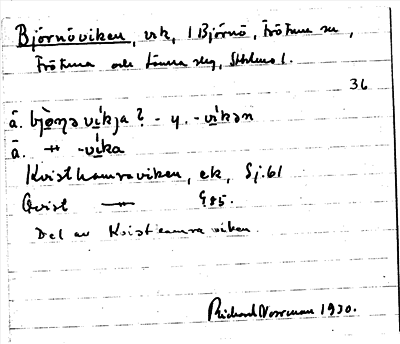 Björnöviken, vik, i Björnö, Frötuna sn,
Frötuna och Länna slg, Sthlms l.
36
å. bjo̤ṇa vi̤kja? - y. -vi̤kən
ä. -"- -vi̤ka
Kvisthamraviken, ek, Sj. 61
Qvist —"— G 85.
Del av Kvisthamraviken.
Richard Norrman 1930.